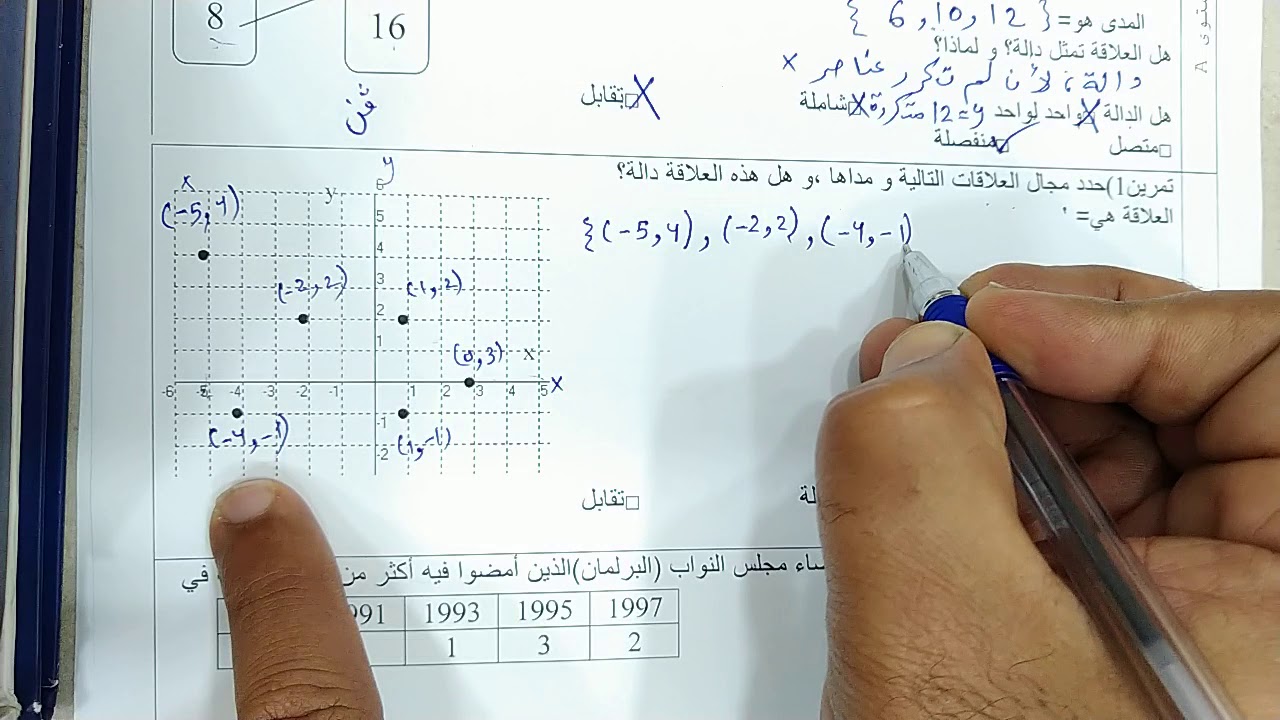 8
16
فن
المدى هو= { 6 , 10 , 12 }
هل العلاقة تمثل دالة؟ و لماذا؟
دالة ، لأن لم تكرر عناصر x
هل الدالة واحد لواحد 12=y متكررة شاملة تقابل
متصل منفصلة
توى A
تمرين1)حدد مجال العلاقات التالية و مداها ،و هل هذه العلاقة دالة؟
العلاقة هي=
{(-5,4), (-2,2), (-4,-1)
x y
y
6
(-5,4)
5
4
(-2,2) 3 (-1,2)
2
1 (0,3) x
-6 -5 -4 -3 -2 -1 1 2 3 4 5 x
-1
(-4,-1) (1,-1)
-2
لة تقابل
ساء مجلس النواب (البرلمان)الذين أمضوا فيه أكثر من في
991 1993 1995 1997
1 3 2